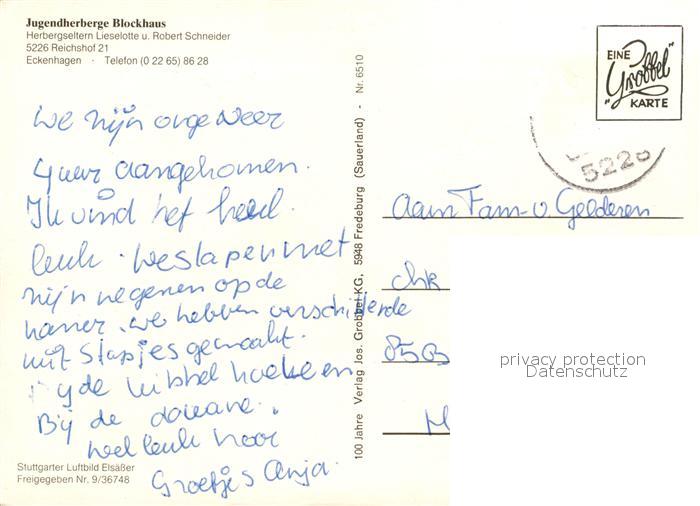 Jugendherberge Blockhaus
Herbergseltern Lieselotte u. Robert Schneider
5226 Reichshof 21
Eckenhagen · Telefon (0 22 65) 86 28
We zijn ongeveer
4 uur aangekomen.
Ik vind het heel
leuk. We slapen met
zijn negenen op de
kamer. We hebben verschillende
uitstapjes gemaakt.
de
Bij de douane.
wel leuk hoor
Groetjes Anja.
Stuttgarter Luftbild Elsäßer
Freigegeben Nr. 9/36748
100 Jahre Verlag Jos. Grobbel KG, 5948 Fredeburg (Sauerland) - Nr. 6510
EINE
"Grobbel"
KARTE
5226
Aan Fam. v. Gelderen
privacy protection
Datenschutz